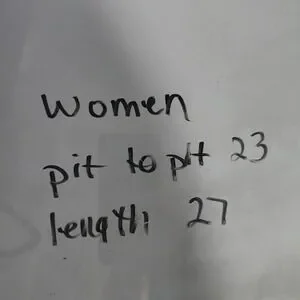 women
pit to pit 23
length 27